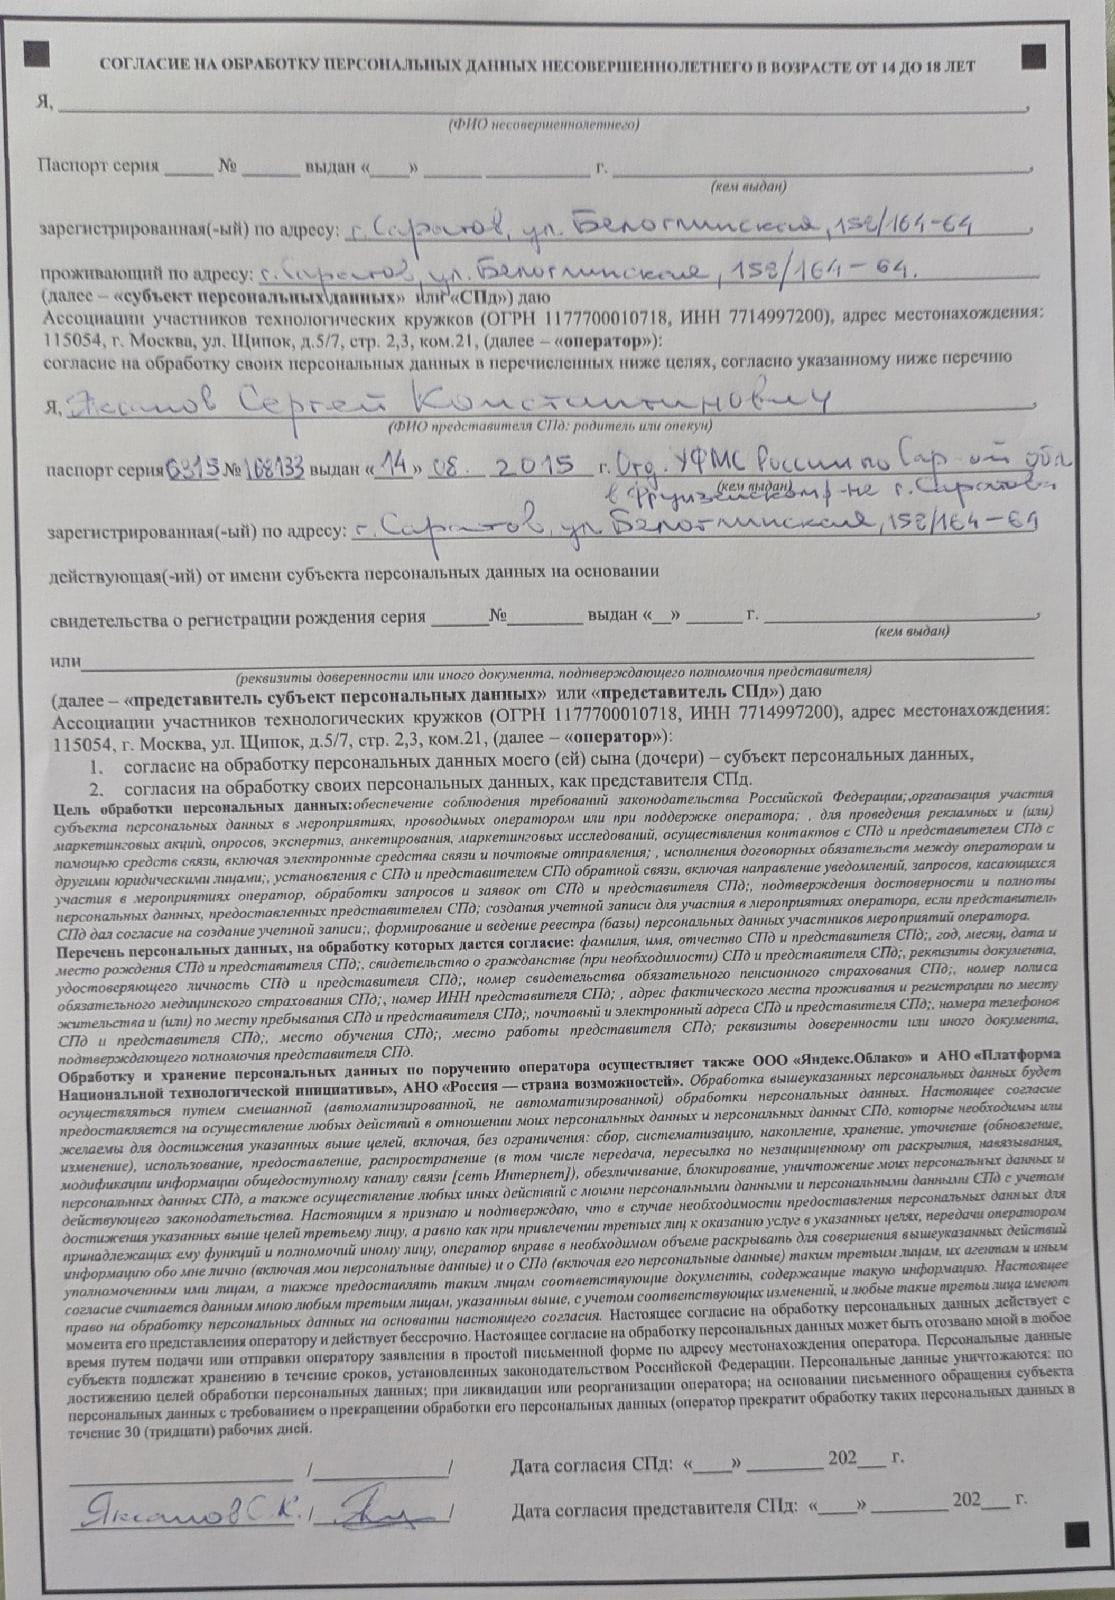 СОГЛАСИЕ НА ОБРАБОТКУ ПЕРСОНАЛЬНЫХ ДАННЫХ НЕСОВЕРШЕННОЛЕТНЕГО В ВОЗРАСТЕ ОТ 14 ДО 18 ЛЕТ
Я, ,
(ФИО несовершеннолетнего)
Паспорт серия _____ № ______ выдан «____» ______ ___________ г. ,
(кем выдан)
зарегистрированная(-ый) по адресу: г. Саратов, ул. Белоглинская, 158/164-64,
проживающий по адресу: г. Саратов, ул. Белоглинская, 158/164-64.
(далее – «субъект персональных данных» или «СПд») даю
Ассоциации участников технологических кружков (ОГРН 1177700010718, ИНН 7714997200), адрес местонахождения:
115054, г. Москва, ул. Щипок, д.5/7, стр. 2,3, ком.21, (далее – «оператор»):
согласие на обработку своих персональных данных в перечисленных ниже целях, согласно указанному ниже перечню
Я, Яксанов Сергей Константинович,
(ФИО представителя СПд: родитель или опекун)
паспорт серия 6315 № 168133 выдан «14» 08. 2015 г. Отд. УФМС России по Сар-ой обл
(кем выдан)
в Фрунзенском р-не г. Саратова
зарегистрированная(-ый) по адресу: г. Саратов, ул. Белоглинская, 158/164-64
действующая(-ий) от имени субъекта персональных данных на основании
свидетельства о регистрации рождения серия ______№________ выдан «__» ______ г. ,
(кем выдан)
или
(реквизиты доверенности или иного документа, подтверждающего полномочия представителя)
(далее – «представитель субъект персональных данных» или «представитель СПд») даю
Ассоциации участников технологических кружков (ОГРН 1177700010718, ИНН 7714997200), адрес местонахождения:
115054, г. Москва, ул. Щипок, д.5/7, стр. 2,3, ком.21, (далее – «оператор»):
1. согласие на обработку персональных данных моего (ей) сына (дочери) – субъект персональных данных,
2. согласия на обработку своих персональных данных, как представителя СПд.
Цель обработки персональных данных:обеспечение соблюдения требований законодательства Российской Федерации;,организация участия
субъекта персональных данных в мероприятиях, проводимых оператором или при поддержке оператора; , для проведения рекламных и (или)
маркетинговых акций, опросов, экспертиз, анкетирования, маркетинговых исследований, осуществления контактов с СПд и представителем СПд с
помощью средств связи, включая электронные средства связи и почтовые отправления; , исполнения договорных обязательств между оператором и
другими юридическими лицами;, установления с СПд и представителем СПд обратной связи, включая направление уведомлений, запросов, касающихся
участия в мероприятиях оператор, обработки запросов и заявок от СПд и представителя СПд;, подтверждения достоверности и полноты
персональных данных, предоставленных представителем СПд; создания учетной записи для участия в мероприятиях оператора, если представитель
СПд дал согласие на создание учетной записи;, формирование и ведение реестра (базы) персональных данных участников мероприятий оператора.
Перечень персональных данных, на обработку которых дается согласие: фамилия, имя, отчество СПд и представителя СПд;, год, месяц, дата и
место рождения СПд и представителя СПд;, свидетельство о гражданстве (при необходимости) СПд и представителя СПд;, реквизиты документа,
удостоверяющего личность СПд и представителя СПд;, номер свидетельства обязательного пенсионного страхования СПд;, номер полиса
обязательного медицинского страхования СПд;, номер ИНН представителя СПд; , адрес фактического места проживания и регистрации по месту
жительства и (или) по месту пребывания СПд и представителя СПд;, почтовый и электронный адреса СПд и представителя СПд;, номера телефонов
СПд и представителя СПд;, место обучения СПд;, место работы представителя СПд; реквизиты доверенности или иного документа,
подтверждающего полномочия представителя СПд.
Обработку и хранение персональных данных по поручению оператора осуществляет также ООО «Яндекс.Облако» и АНО «Платформа
Национальной технологической инициативы», АНО «Россия — страна возможностей». Обработка вышеуказанных персональных данных будет
осуществляться путем смешанной (автоматизированной, не автоматизированной) обработки персональных данных. Настоящее согласие
предоставляется на осуществление любых действий в отношении моих персональных данных и персональных данных СПд, которые необходимы или
желаемы для достижения указанных выше целей, включая, без ограничения: сбор, систематизацию, накопление, хранение, уточнение (обновление,
изменение), использование, предоставление, распространение (в том числе передача, пересылка по незащищенному от раскрытия, навязывания,
модификации информации общедоступному каналу связи [сеть Интернет]), обезличивание, блокирование, уничтожение моих персональных данных и
персональных данных СПд, а также осуществление любых иных действий с моими персональными данными и персональными данными СПд с учетом
действующего законодательства. Настоящим я признаю и подтверждаю, что в случае необходимости предоставления персональных данных для
достижения указанных выше целей третьему лицу, а равно как при привлечении третьих лиц к оказанию услуг в указанных целях, передачи оператором
принадлежащих ему функций и полномочий иному лицу, оператор вправе в необходимом объеме раскрывать для совершения вышеуказанных действий
информацию обо мне лично (включая мои персональные данные) и о СПд (включая его персональные данные) таким третьим лицам, их агентам и иным
уполномоченным ими лицам, а также предоставлять таким лицам соответствующие документы, содержащие такую информацию. Настоящее
согласие считается данным мною любым третьим лицам, указанным выше, с учетом соответствующих изменений, и любые такие третьи лица имеют
право на обработку персональных данных на основании настоящего согласия. Настоящее согласие на обработку персональных данных действует с
момента его представления оператору и действует бессрочно. Настоящее согласие на обработку персональных данных может быть отозвано мной в любое
время путем подачи или отправки оператору заявления в простой письменной форме по адресу местонахождения оператора. Персональные данные
субъекта подлежат хранению в течение сроков, установленных законодательством Российской Федерации. Персональные данные уничтожаются: по
достижению целей обработки персональных данных; при ликвидации или реорганизации оператора; на основании письменного обращения субъекта
персональных данных с требованием о прекращении обработки его персональных данных (оператор прекратит обработку таких персональных данных в
течение 30 (тридцати) рабочих дней.
/ / Дата согласия СПд: «____» ________ 202___ г.
Яксанов С.К. / / Дата согласия представителя СПд: «____» ________ 202___ г.